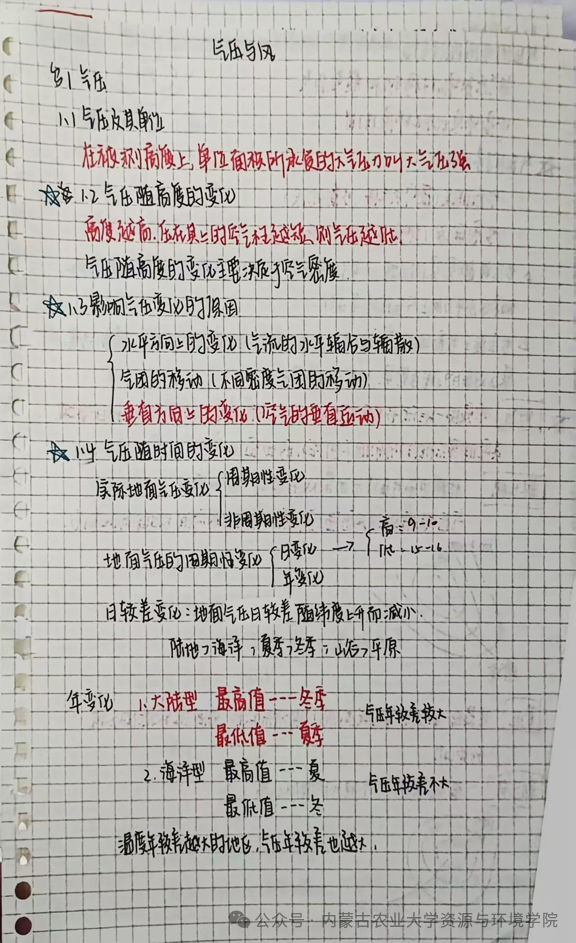 气压与风
§1 气压
1.1 气压及其单位
在被测高度上,单位面积所承受的大气压力叫大气压强
☆ 1.2 气压随高度的变化
高度越高,压在其上的空气柱越短,则气压越低.
气压随高度的变化主要决定于空气密度
☆ 1.3 影响气压变化的原因
水平方向上的变化(气流的水平辐合与辐散)
气团的移动(不同密度气团的移动)
垂直方向上的变化(空气的垂直运动)
☆ 1.4 气压随时间的变化
实际地面气压变化 { 周期性变化
非周期性变化
地面气压的周期性变化 { 日变化 → { 高:9-10
年变化 低:15-16
日较差变化:地面气压日较差随纬度上升而减小.
陆地>海洋;夏季>冬季;山谷>平原
年变化 1.大陆型 最高值---冬季 气压年较差较大
最低值---夏季
2.海洋型 最高值---夏 气压年较差不大
最低值---冬
温度年较差越大的地区,气压年较差也越大.
公众号·内蒙古农业大学资源与环境学院